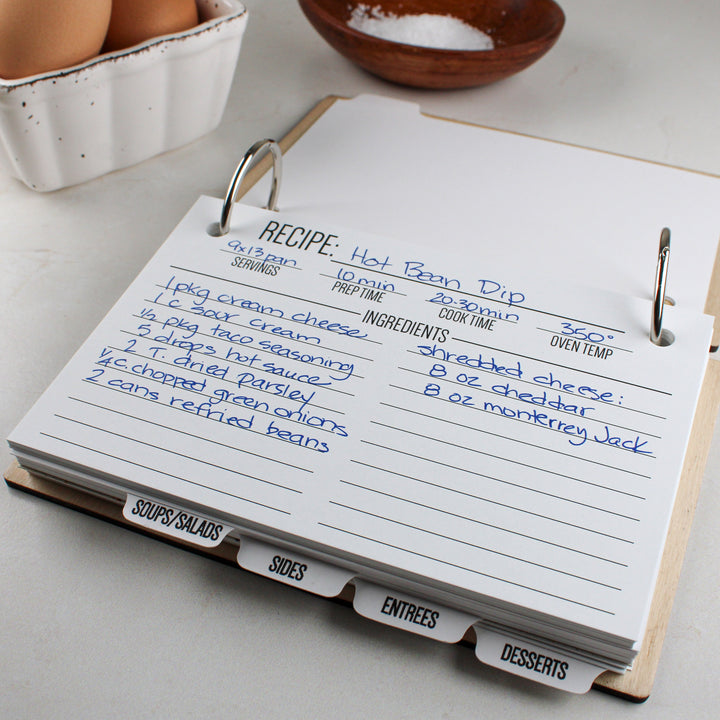 RECIPE: Hot Bean Dip
9x13 pan 10 min 20-30 min 350°
SERVINGS PREP TIME COOK TIME OVEN TEMP
INGREDIENTS
1 pkg cream cheese
1 c sour cream
1/2 pkg taco seasoning
5 drops hot sauce
2 T. dried parsley
1/4 c. chopped green onions
2 cans refried beans
shredded cheese:
8 oz cheddar
8 oz monterrey Jack
SOUPS/SALADS
SIDES
ENTREES
DESSERTS